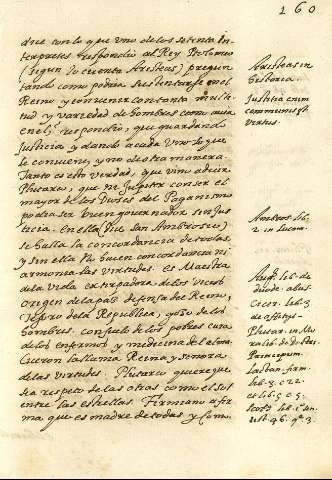 160
dice con lo que vno de los setenta In-
terpretes respondio al Rey Ptolomeo
(segun lo cuenta Aristeas) pregun
tando como podria sustentarse en el
Reino y conuenir con tanta multi
tud y variedad de hombres como auia
en el; respondio, que guardando
Justicia y dando a cada vno lo que
le conuiene, y no de otra manera.
Tanto es esto verdad, que vino a decir
Plutarco, que ni Jupiter con ser el
mayor de los Dioses del Paganismo
podia ser buen gouernador sin Jus
ticia. En ella (dice san Ambrosio)
se halla la concordancia de todas,
y sin ella no ay buen concordancia ni
armonia las virtudes. es Maestra
de la vida extirpadora de los vicios
origen de la paz defensa del Reino,
Tesoro de la Republica, gozo de los
hombres. consuelo de los pobres cura
de los enfermos y medicina del alma.
Ciceron la llama Reina y señora
de las virtudes. Plutarco quiere que
sea respeto de las otras como el sol
entre las estrellas. Firmiano afir
ma que es madre de todas y como
Aristeas in
historia.
Justitia enim
communis est
virtus.
Ambros. lib.
2. in lucam.
Aug. lib. de
duode. abus.
Cicer. lib. 3
de offitijs
Plutar. in Mo
ralib. de do
Principum.
Lactan. firm.
lib. 3. c 22.
et lib. 5 c 5.